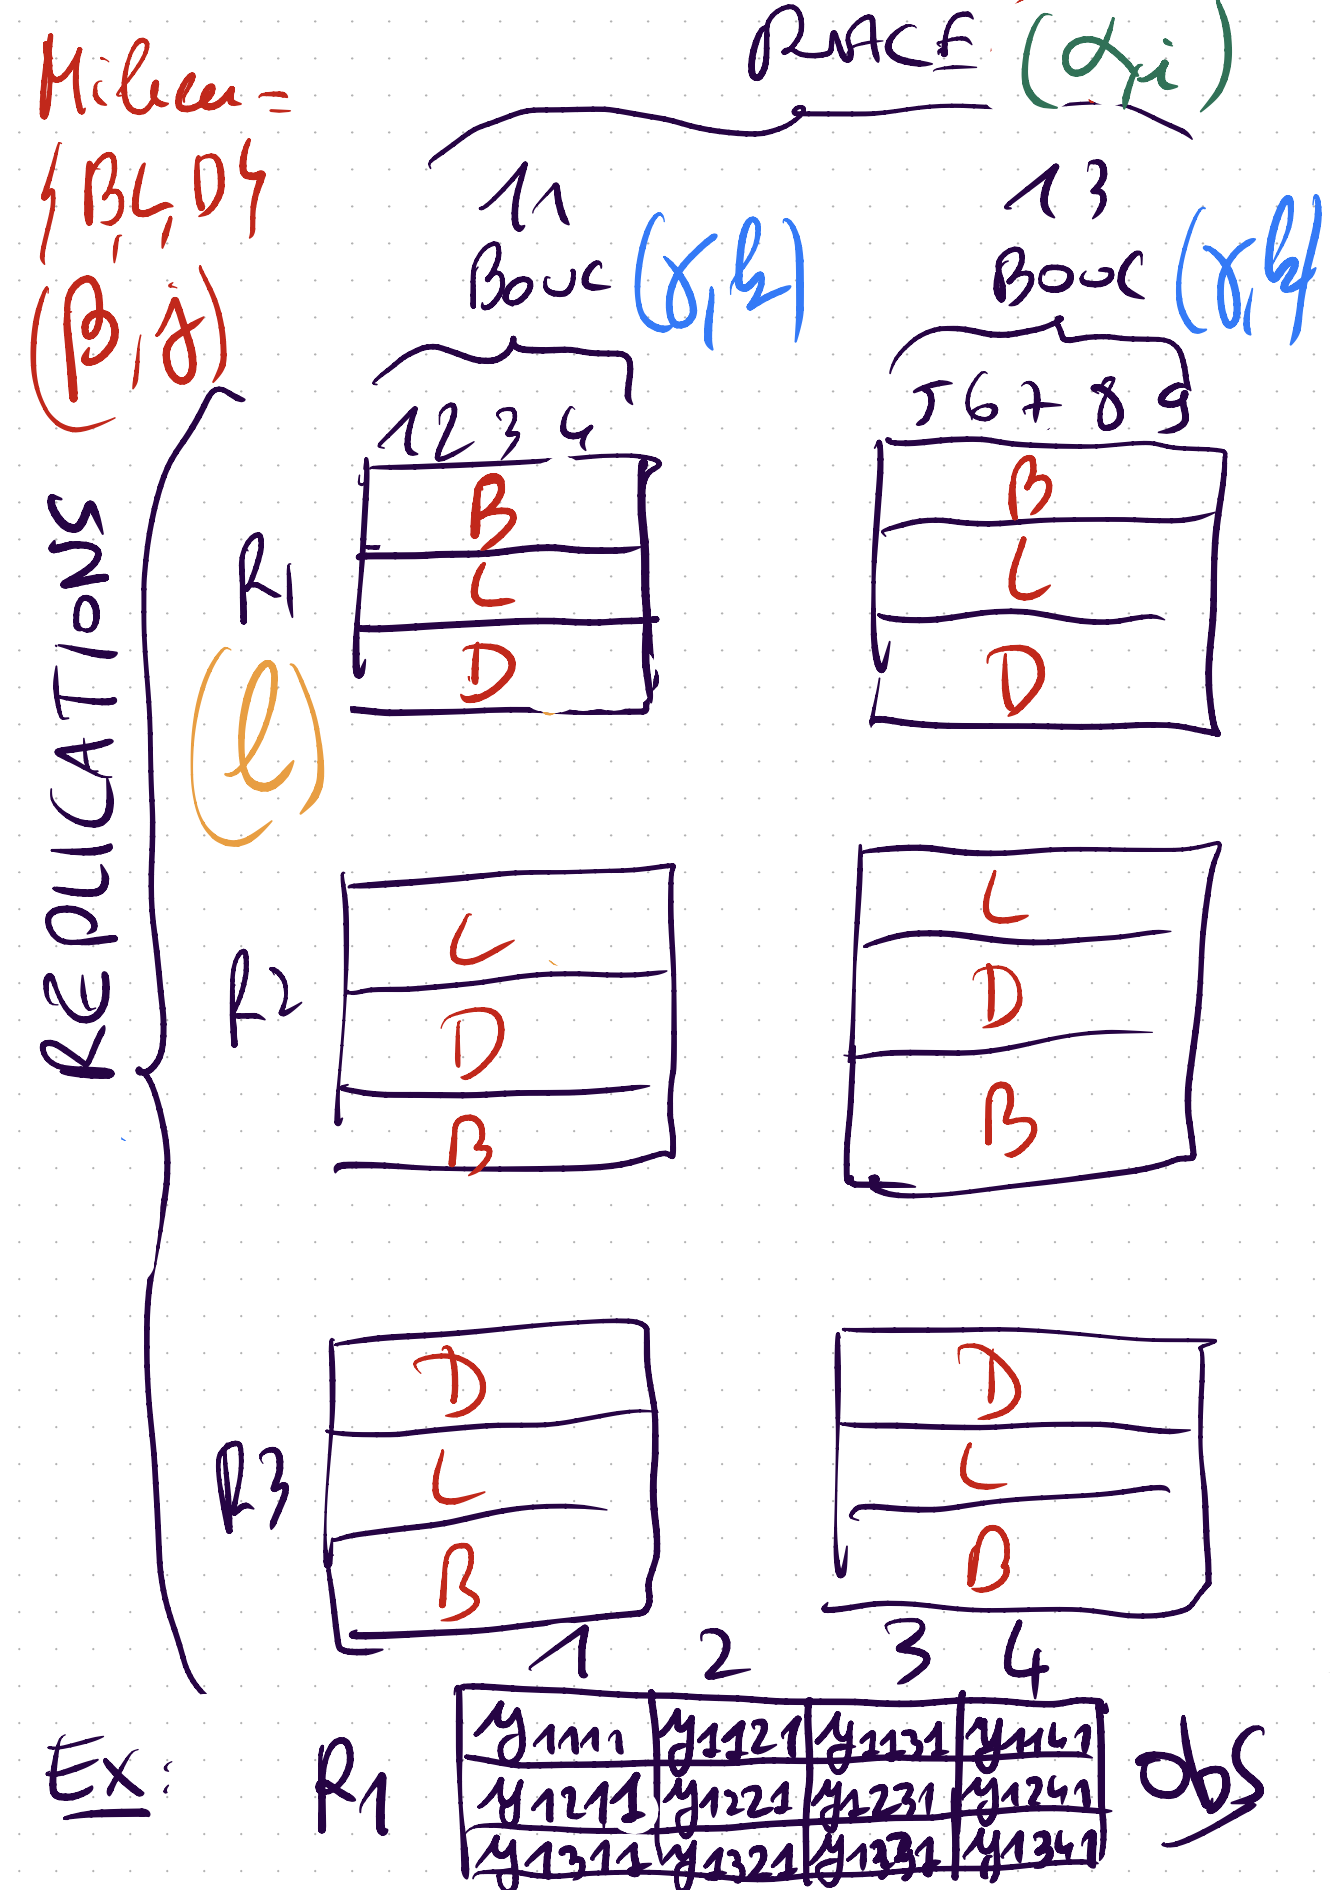 RACE (α, i)
Milieu =
{B, L, D}
(β, j)
11
13
Bouc (γ, k)
Bouc (γ, k)
1 2 3 4
5 6 7 8 9
REPLICATIONS
R1
(l)
B
L
D
B
L
D
R2
L
D
B
L
D
B
R3
D
L
B
D
L
B
1 2 3 4
Ex : R1
y1111 y1121 y1131 y1141
y1211 y1221 y1231 y1241
y1311 y1321 y1331 y1341
obs